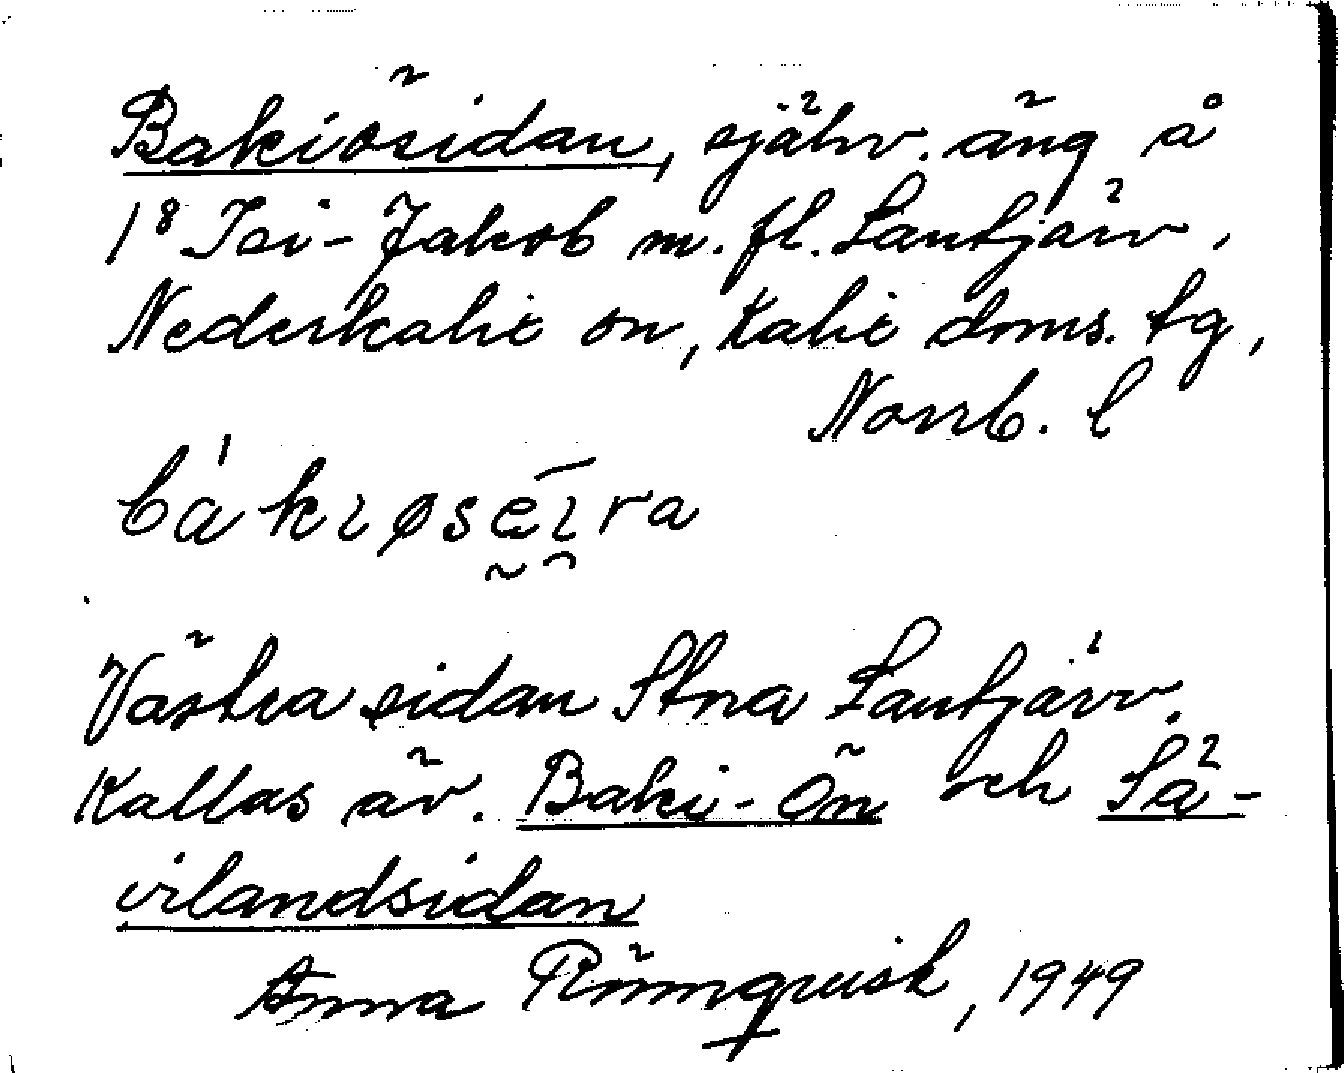 Bakiösidan, självv. äng å
1⁸ Isi-Jakob m. fl. Lantjärv,
Nederkalix sn, Kalix doms. tg,
Norrb. l
bákıøsẽı̄ra
Västra sidan Stora Lantjärv.
Kallas äv. Baki-Ön och Sä-
vilandsidan
Anna Rönnqvist, 1949